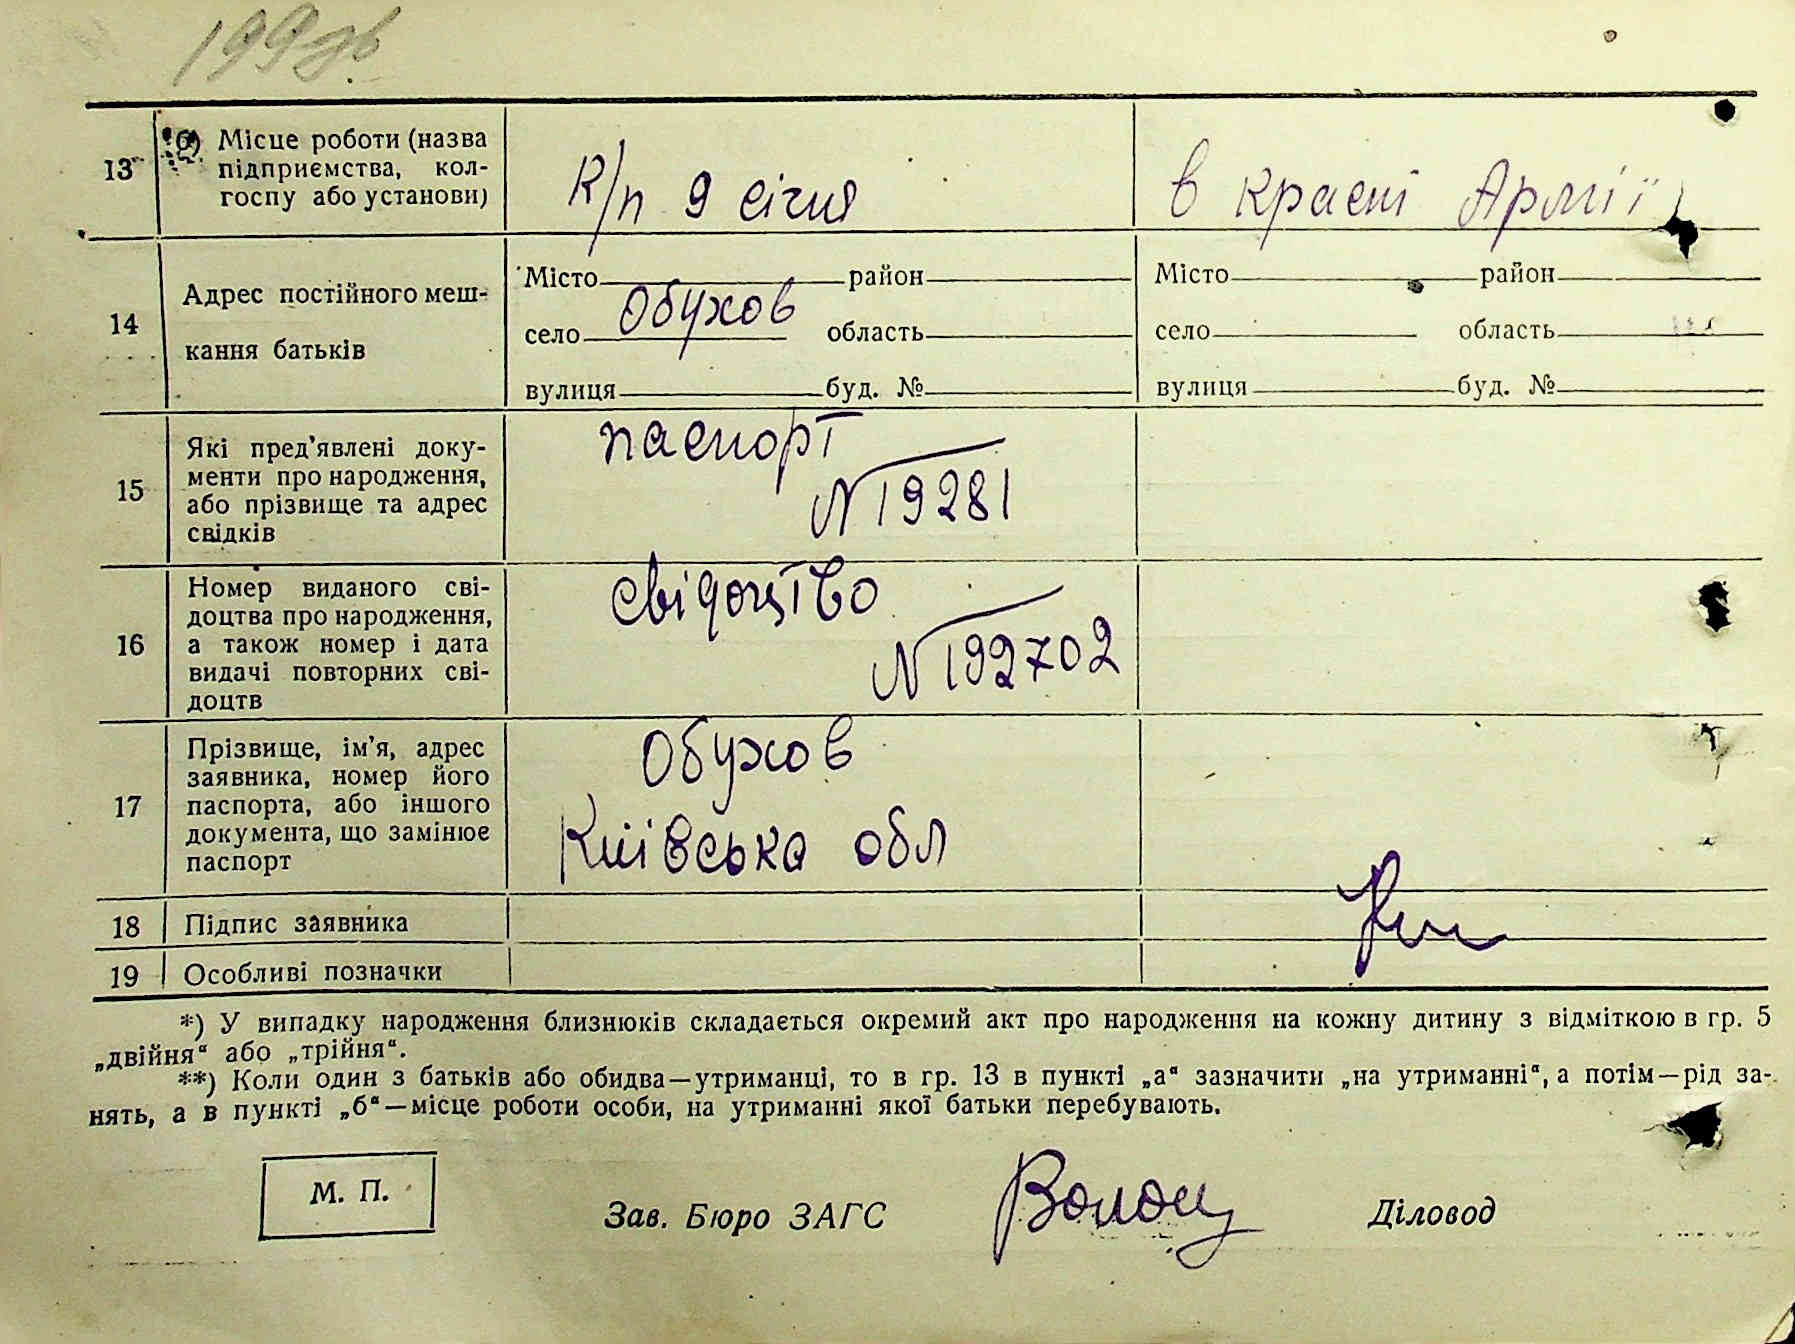 199зв.
13 б) Місце роботи (назва підприємства, колгоспу або установи)
К/п 9 січня
в красні Армії
14 Адрес постійного мешкання батьків
Місто район
село Обухов область
вулиця буд. №
Місто район
село область
вулиця буд. №
15 Які пред'явлені документи про народження, або прізвище та адрес свідків
паспорт
N 19281
16 Номер виданого свідоцтва про народження, а також номер і дата видачі повторних свідоцтв
свідоцтво
N 192702
17 Прізвище, ім'я, адрес заявника, номер його паспорта, або іншого документа, що замінює паспорт
Обухов
Київська обл
18 Підпис заявника
19 Особливі позначки
*) У випадку народження близнюків складається окремий акт про народження на кожну дитину з відміткою в гр. 5
„двійня“ або „трійня“.
**) Коли один з батьків або обидва—утриманці, то в гр. 13 в пункті „а“ зазначити „на утриманні“, а потім—рід за-
нять, а в пункті „б“—місце роботи особи, на утриманні якої батьки перебувають.
М. П.
Зав. Бюро ЗАГС
Діловод